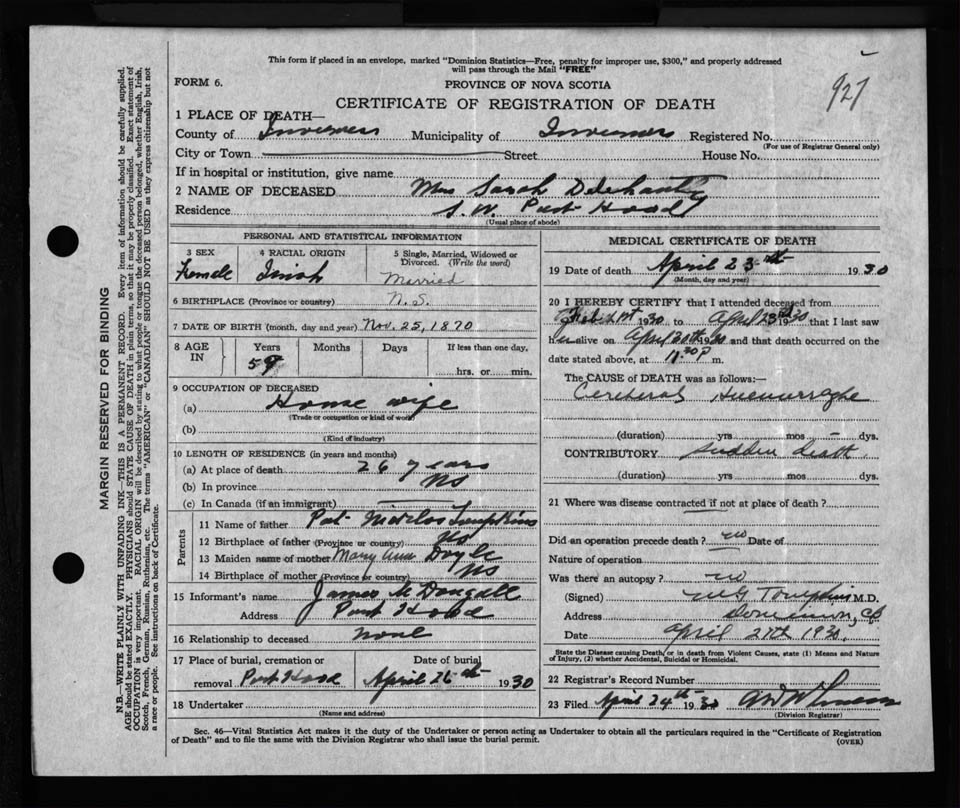 This form if placed in an envelope, marked "Dominion Statistics—Free, penalty for improper use, $300," and properly addressed
will pass through the Mail "FREE"
927
FORM 6.
PROVINCE OF NOVA SCOTIA
CERTIFICATE OF REGISTRATION OF DEATH
1 PLACE OF DEATH—
County of Inverness Municipality of Inverness Registered No.
(For use of Registrar General only)
City or Town Street House No.
If in hospital or institution, give name
2 NAME OF DECEASED Mrs Sarah Delehanty
Residence S. W. Port Hood
(Usual place of abode)
PERSONAL AND STATISTICAL INFORMATION
3 SEX 4 RACIAL ORIGIN 5 Single, Married, Widowed or
Divorced. (Write the word)
Female Irish Married
6 BIRTHPLACE (Province or country) N.S.
7 DATE OF BIRTH (month, day and year) Nov. 25, 1870
8 AGE IN Years Months Days If less than one day,
59 hrs. or min.
9 OCCUPATION OF DECEASED
(a) House wife
(Trade or occupation or kind of work)
(b)
(Kind of industry)
10 LENGTH OF RESIDENCE (in years and months)
(a) At place of death 26 years
(b) In province NS
(c) In Canada (if an immigrant)
Parents
11 Name of father Pat Tompkins
12 Birthplace of father (Province or country) NS
13 Maiden name of mother Mary Ann Doyle
14 Birthplace of mother (Province or country) NS
15 Informant's name James McDougall
Address Port Hood
16 Relationship to deceased none
17 Place of burial, cremation or Date of burial
removal Port Hood April 26th 1930
18 Undertaker
(Name and address)
MEDICAL CERTIFICATE OF DEATH
19 Date of death April 23th 1930
(Month, day and year)
20 I HEREBY CERTIFY that I attended deceased from
Feb. 21st 1930 to April 23rd 1930 that I last saw
her alive on April 20th 1930 and that death occurred on the
date stated above, at 11.30 P m.
The CAUSE of DEATH was as follows:—
Cerebral Huemurraghe
(duration) yrs mos dys.
CONTRIBUTORY sudden death
(duration) yrs mos dys.
21 Where was disease contracted if not at place of death?
Did an operation precede death? no Date of
Nature of operation
Was there an autopsy? no
(Signed) Tompkins M.D.
Address Dominion, CB
Date April 27th 1930.
State the Disease causing Death, or in death from Violent Causes, state (1) Means and Nature
of Injury, (2) whether Accidental, Suicidal or Homicidal.
22 Registrar's Record Number
23 Filed April 24th 1930
(Division Registrar)
Sec. 46—Vital Statistics Act makes it the duty of the Undertaker or person acting as Undertaker to obtain all the particulars required in the "Certificate of Registration
of Death" and to file the same with the Division Registrar who shall issue the burial permit.
(OVER)
MARGIN RESERVED FOR BINDING
N.B.—WRITE PLAINLY WITH UNFADING INK—THIS IS A PERMANENT RECORD. Every item of information should be carefully supplied.
AGE should be stated EXACTLY. PHYSICIANS should STATE CAUSE OF DEATH in plain terms, so that it may be properly classified. Exact statement of
OCCUPATION is very important. RACIAL ORIGIN will be described by stating to what people or tongue the deceased person belonged, whether English, Irish,
Scotch, French, German, Russian, Ruthenian, etc. The terms "AMERICAN" or "CANADIAN" SHOULD NOT BE USED as they express citizenship but not
a race or people. See instructions on back of Certificate.